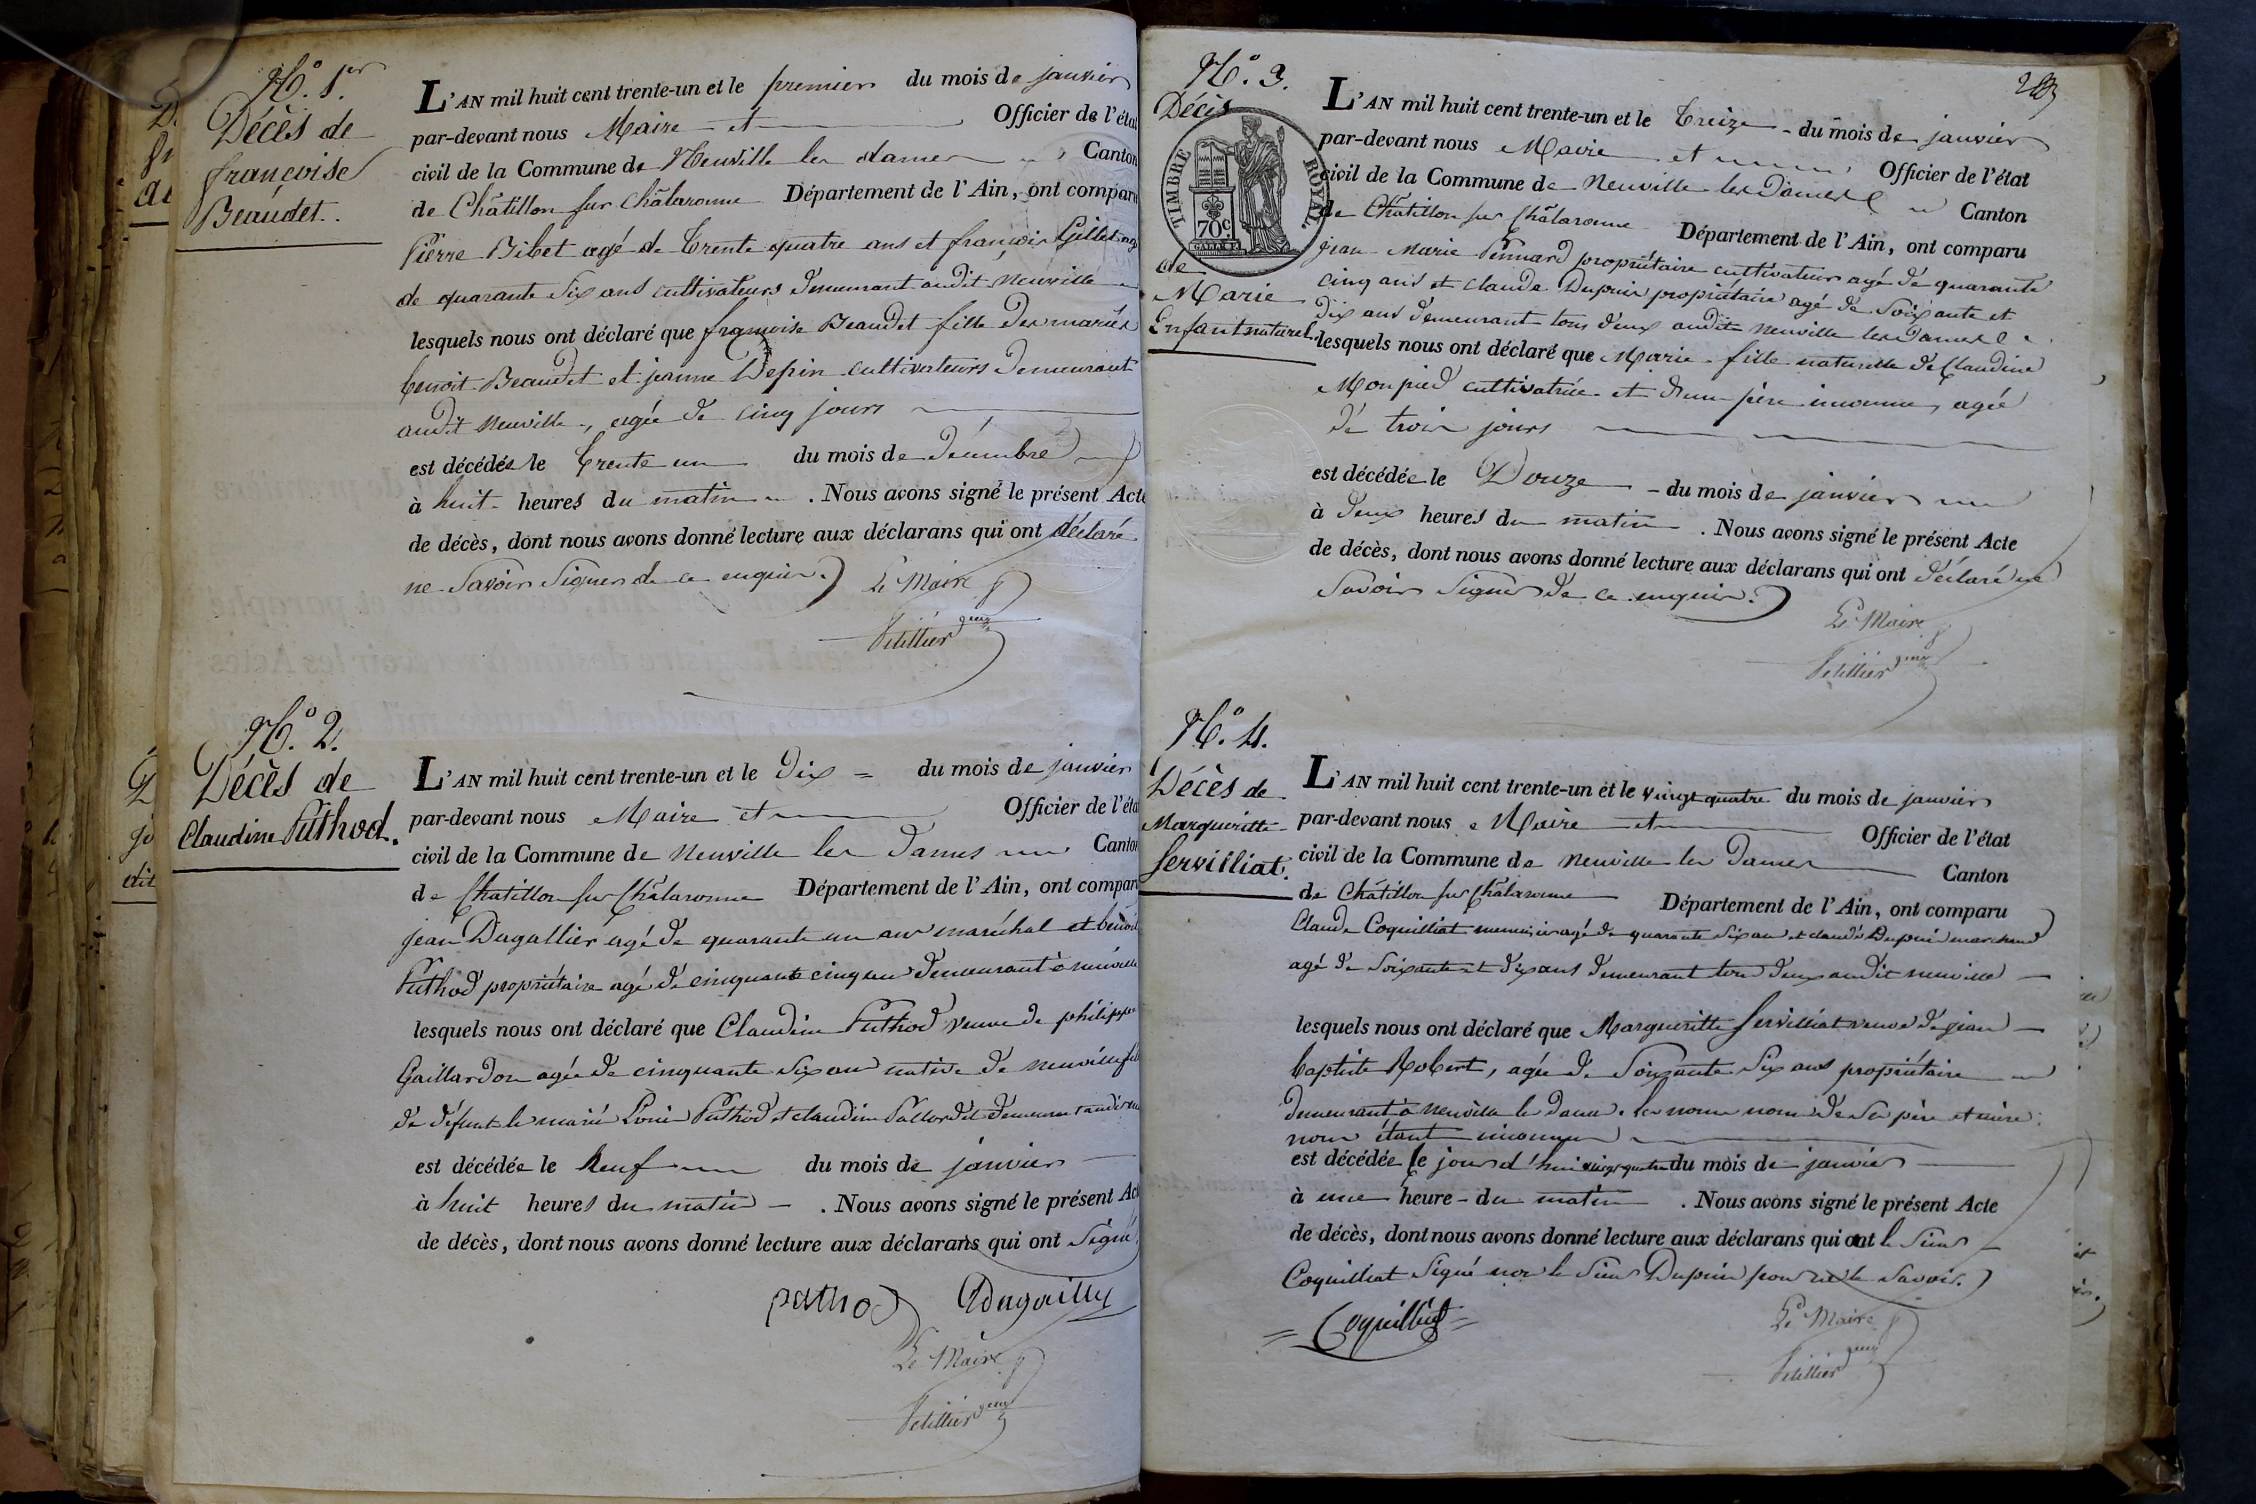 N.° 1.er
Décès de
françoise
Beaudet.
L'AN mil huit cent trente-un et le premier du mois de janvier
par-devant nous Maire et Officier de l'état
civil de la Commune de Neuville les dames Canton
de Châtillon sur Châlaronne Département de l'Ain, ont comparu
Pierre Bibet agé de trente quatre ans et françois Gillet agé
de quarante six ans cultivateurs demeurant audit Neuville
lesquels nous ont déclaré que françoise Beaudet fille des mariés
benoit Beaudet et jeanne Depin cultivateurs demeurant
audit Neuville, agée de cinq jours
est décédée le trente un du mois de décembre
à huit heures du matin . Nous avons signé le présent Acte
de décès, dont nous avons donné lecture aux déclarans qui ont déclaré
ne savoir signer de ce enquis.
Le Maire
N.° 2.
Décès de
Claudine Puthod.
L'AN mil huit cent trente-un et le dix du mois de janvier
par-devant nous Maire et Officier de l'état
civil de la Commune de Neuville les dames Canton
de Châtillon sur Châlaronne Département de l'Ain, ont comparu
jean Dugallier agé de quarante un ans maréchal et benoit
Puthod propriétaire agé de cinquante cinq ans demeurant à neuville
lesquels nous ont déclaré que Claudine Puthod veuve de philippe
Gaillardon agée de cinquante six ans native de neuville fille
de défunt le marié Louis Puthod et claudine demeurant audit
est décédée le neuf du mois de janvier
à huit heures du matin . Nous avons signé le présent Acte
de décès, dont nous avons donné lecture aux déclarans qui ont signé
puthod Dugailly
Le Maire
283
N.° 3.
Décès
TIMBRE ROYAL.
70c.
de
Marie
Enfant naturel.
L'AN mil huit cent trente-un et le treize du mois de janvier
par-devant nous Maire et Officier de l'état
civil de la Commune de Neuville les Dames Canton
de Châtillon sur Châlaronne Département de l'Ain, ont comparu
jean Marie Pennard propriétaire cultivateur agé de quarante
cinq ans et claude Dupuis propriétaire agé de soixante et
dix ans demeurant tous deux audit neuville les Dames
lesquels nous ont déclaré que Marie fille naturelle de Claudine
Monpied cultivatrice et d'un père inconnu, agée
de trois jours
est décédée le Douze du mois de janvier
à deux heures du matin . Nous avons signé le présent Acte
de décès, dont nous avons donné lecture aux déclarans qui ont déclaré ne
savoir signer de ce enquis.
Le Maire
N.° 4.
Décès de
Margueritte
Servilliat.
L'AN mil huit cent trente-un et le vingt quatre du mois de janvier
par-devant nous Maire et Officier de l'état
civil de la Commune de Neuville les Dames Canton
de Châtillon sur Châlaronne Département de l'Ain, ont comparu
Claude Coquilliat menuisier agé de quarante six ans et claude Dupuis marchand
agé de soixante et dix ans demeurant tous deux audit neuville
lesquels nous ont déclaré que Margueritte Servilliat veuve de jean
baptiste Robert, agée de soixante six ans propriétaire
demeurant à Neuville les dames. les noms de ses père et mère
nous étant inconnus
est décédée le jourd'hui vingt quatre du mois de janvier
à une heure du matin . Nous avons signé le présent Acte
de décès, dont nous avons donné lecture aux déclarans qui ont le sieur
Coquilliat signé non le sieur Dupuis pour ne le savoir.
Coquilliat
Le Maire